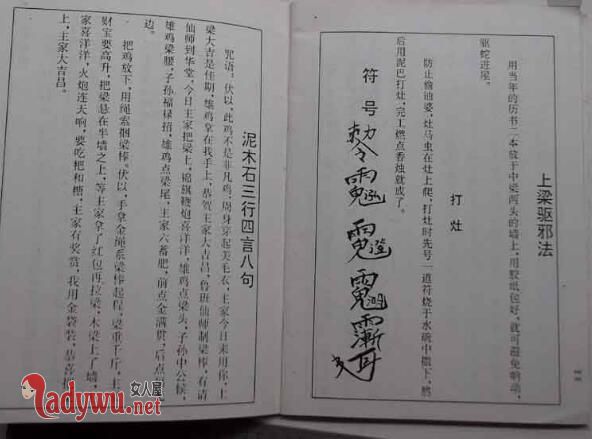 上梁驱邪法
用当年的历书二本放于中梁两头的墙上，用胶纸包好，就可避免响动，
驱蛇进屋。
打灶
防止偷油婆，灶马虫在灶上爬，打灶时先号一道符烧于水碗中撒下，然
后用泥巴打灶，完工燃点香烛就成了。
符号
泥木石三行四言八句
咒语。伏以，此鸡不是非凡鸡，周身穿起美毛衣，主家今日来用你，上
梁大吉是佳期，雄鸡拿在我手上，恭贺主家大吉昌，鲁班仙师制梁棒，有请
仙师到华堂，今日主家把梁上，锦旗鞭炮喜洋洋，雄鸡点梁头，子孙中公候，
雄鸡梁腰，子孙福禄招，雄鸡点梁尾，主家六畜肥，前点金满贯，后点
边。
把鸡放下，用绳索捆梁棒。伏以，手拿金绳系梁棒起程，梁重千斤，主
财宝要高升，把梁悬在半墙之上，等主家拿了红包再拉梁，木梁上了墙，
家喜洋洋，火炮连天响，要吃粑和糖，主家有奖赏，我用金袋装，恭喜
上，主家大吉昌。
女人屋
Ladywu.net